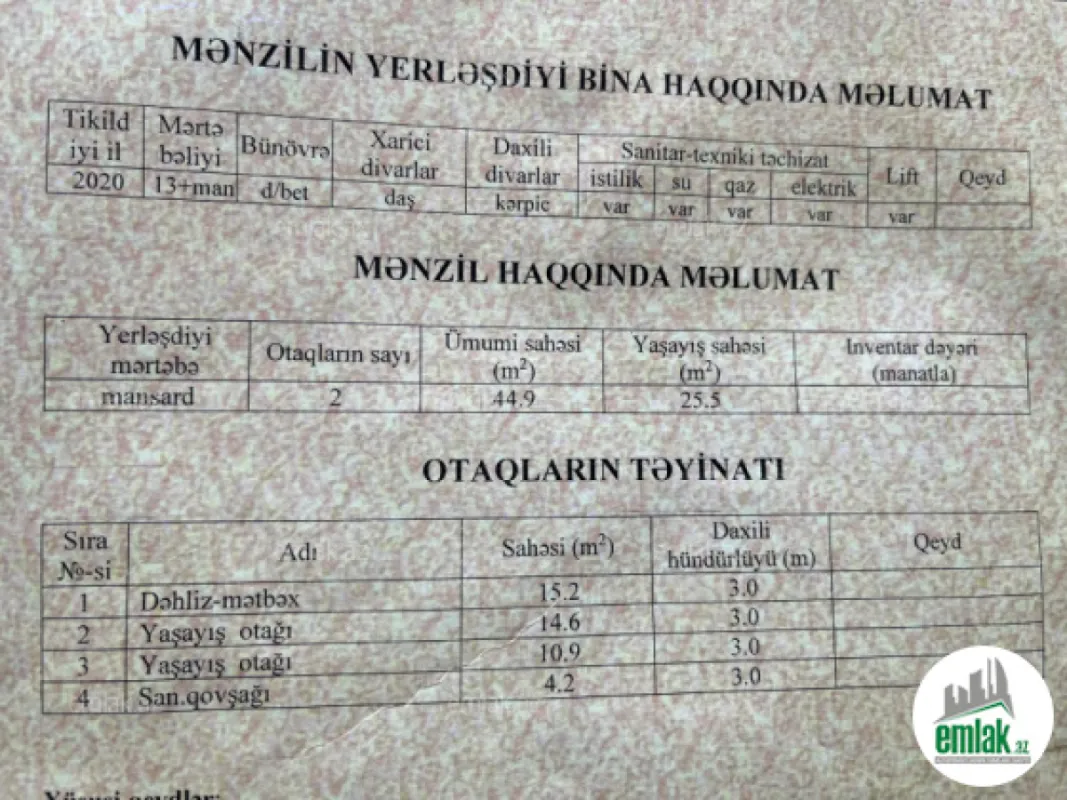 MƏNZİLİN YERLƏŞDİYİ BİNA HAQQINDA MƏLUMAT
Tikild iyi il Mərtə bəliyi Bünövrə Xarici divarlar Daxili divarlar Sanitar-texniki təchizat Lift Qeyd
istilik su qaz elektrik
2020 13+man d/bet daş kərpic var var var var var
MƏNZİL HAQQINDA MƏLUMAT
Yerləşdiyi mərtəbə Otaqların sayı Ümumi sahəsi (m²) Yaşayış sahəsi (m²) İnventar dəyəri (manatla)
mansard 2 44.9 25.5
OTAQLARIN TƏYİNATI
Sıra №-si Adı Sahəsi (m²) Daxili hündürlüyü (m) Qeyd
1 Dəhliz-mətbəx 15.2 3.0
2 Yaşayış otağı 14.6 3.0
3 Yaşayış otağı 10.9 3.0
4 San.qovşağı 4.2 3.0
emlak.az